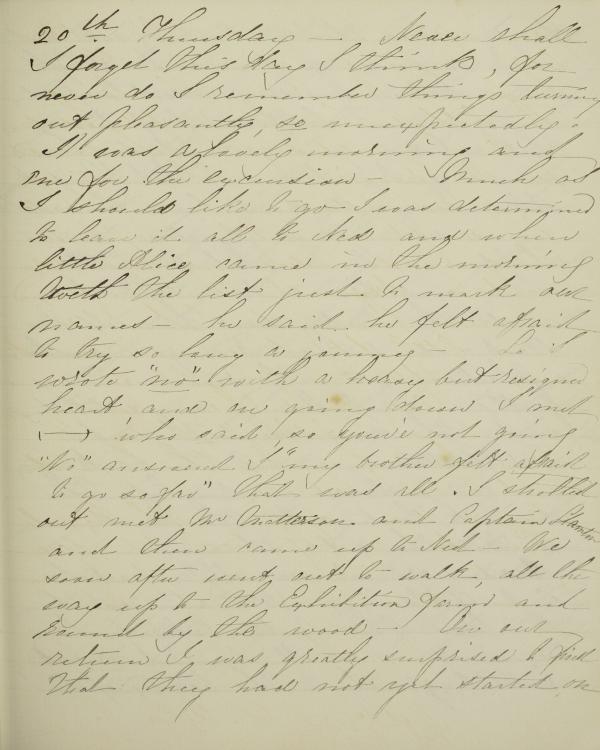 20th Thursday — Never shall
I forget this day I think, for
never do I remember things turning
out pleasantly, so unexpectedly.
It was a lovely morning and
one for the excursion — Much as
I should like to go I was determined
to leave it all to Ned and when
little Alice came in the morning
with the list just to mark our
names — he said he felt afraid
to try so long a journey — So I
wrote "no" with a heavy but resigned
heart and on going down I met
— who said, so you're not going
"No" answered I "my brother felt afraid
to go so far" that was all. I strolled
out met Mr Matterson and Captain Stanton
and then came up to Ned — We
soon after went out to walk, all the
way up to the Exhibition ground and
round by the wood — On our
return I was greatly surprised to find
that they had not yet started, on